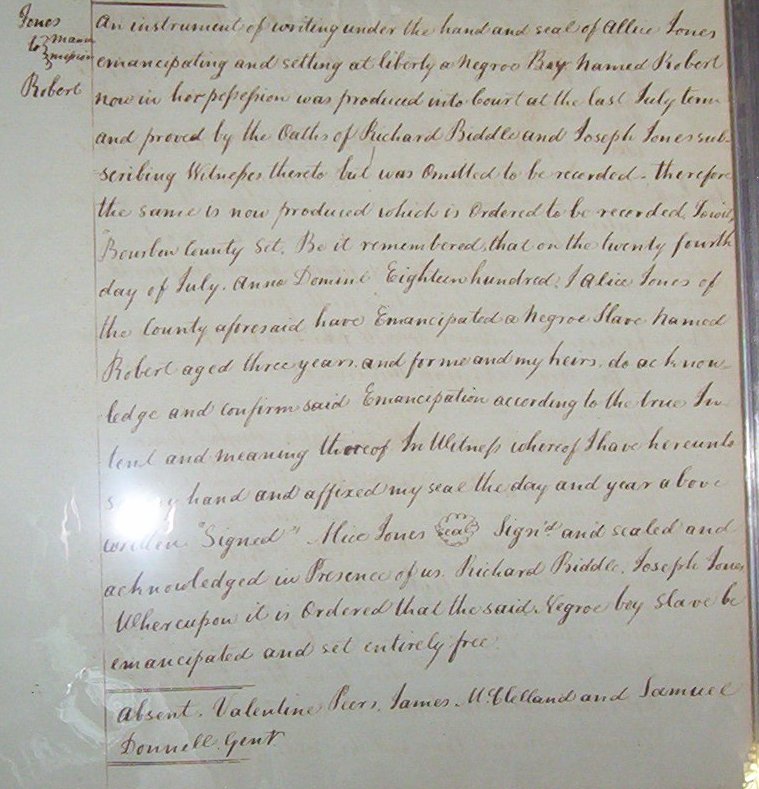 Jones
to } Manu
mission
Robert
An instrument of writing under the hand and seal of Allice Jones
emancipating and setting at liberty a Negroe Boy Named Robert
now in her possession was produced into Court at the last July term
and proved by the Oaths of Richard Biddle and Joseph Jones sub-
scribing Witnesses thereto but was Omitted to be recorded - therefore
the same is now produced which is Ordered to be recorded, Towit,
"Bourbon County Sct. Be it remembered, that on the twenty fourth
day of July. Anno Domini Eighteen hundred, I Alice Jones of
the County aforesaid have Emancipated a Negroe Slave Named
Robert aged three years, and for me and my heirs, do acknow-
ledge and confirm said Emancipation according to the true In
tent and meaning thereof In Witness whereof I have hereunto
my hand and affixed my seal the day and year above
written "Signed" Alice Jones seal Sign'd and sealed and
acknowledged in Presence of us. Richard Biddle, Joseph Jones
Whereupon it is Ordered that the said Negroe boy Slave be
emancipated and set entirely free
Absent. Valentine Peers, James McClelland and Samuel
Donnell, Gent